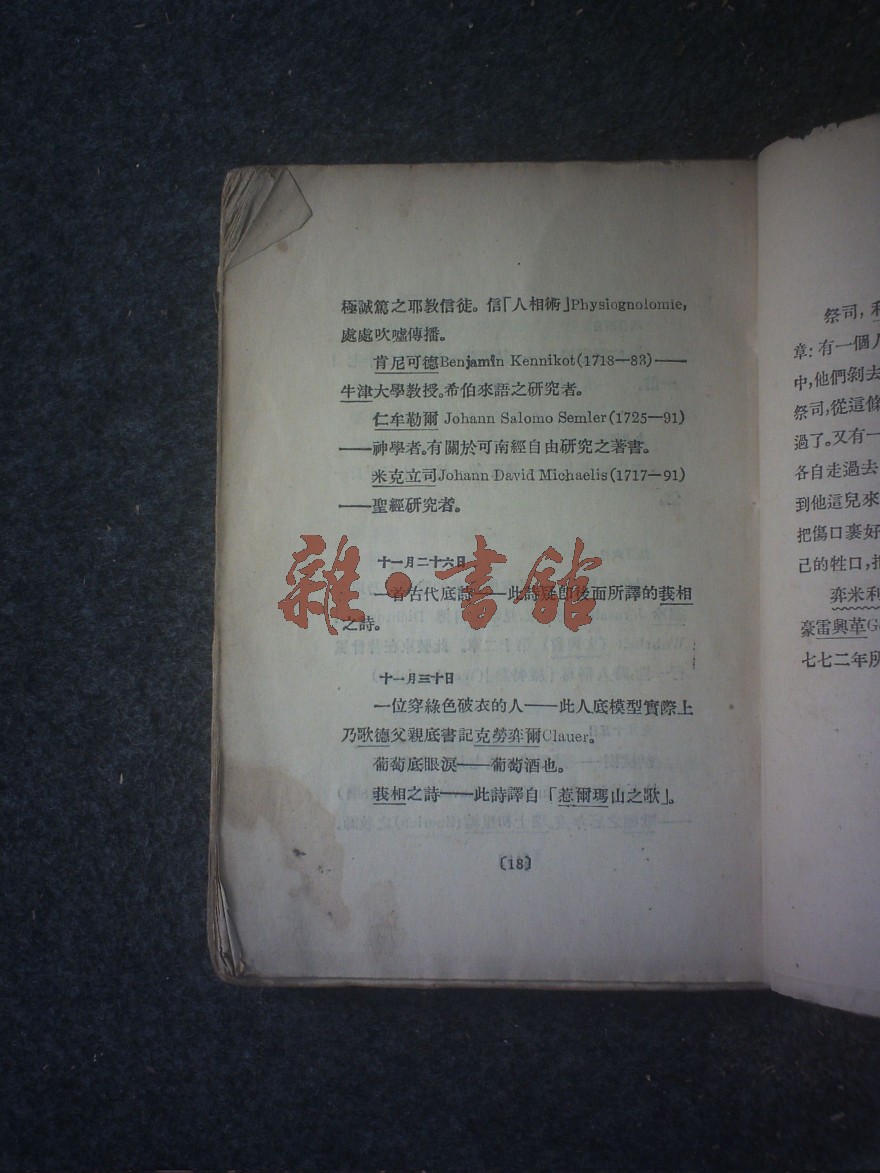 極誠篤之耶教信徒。信「人相術」Physiognolomie,
處處吹噓傳播。
肯尼可德Benjamin Kennikot(1718—83)——
牛津大學教授。希伯來語之研究者。
仁牟勒爾 Johann Salomo Semler(1725—91)
——神學者。有關於可南經自由研究之著書。
米克立司Johann David Michaelis(1717—91)
——聖經研究者。
十一月二十六日
一首古代底詩——此詩疑即後面所譯的莪相
之詩。
雜·書館
十一月三十日
一位穿綠色破衣的人——此人底模型實際上
乃歌德父親底書記克勞弈爾Clauer。
葡萄底眼淚——葡萄酒也。
莪相之詩——此詩譯自「惹爾瑪山之歌」。
〔18〕
祭司,
章:有一個人
中,他們剝去
祭司,從這條
過了。又有一
各自走過去
到他這兒來
把傷口裹好
己的牲口,
弈米利
豪雷興革G
七七二年所